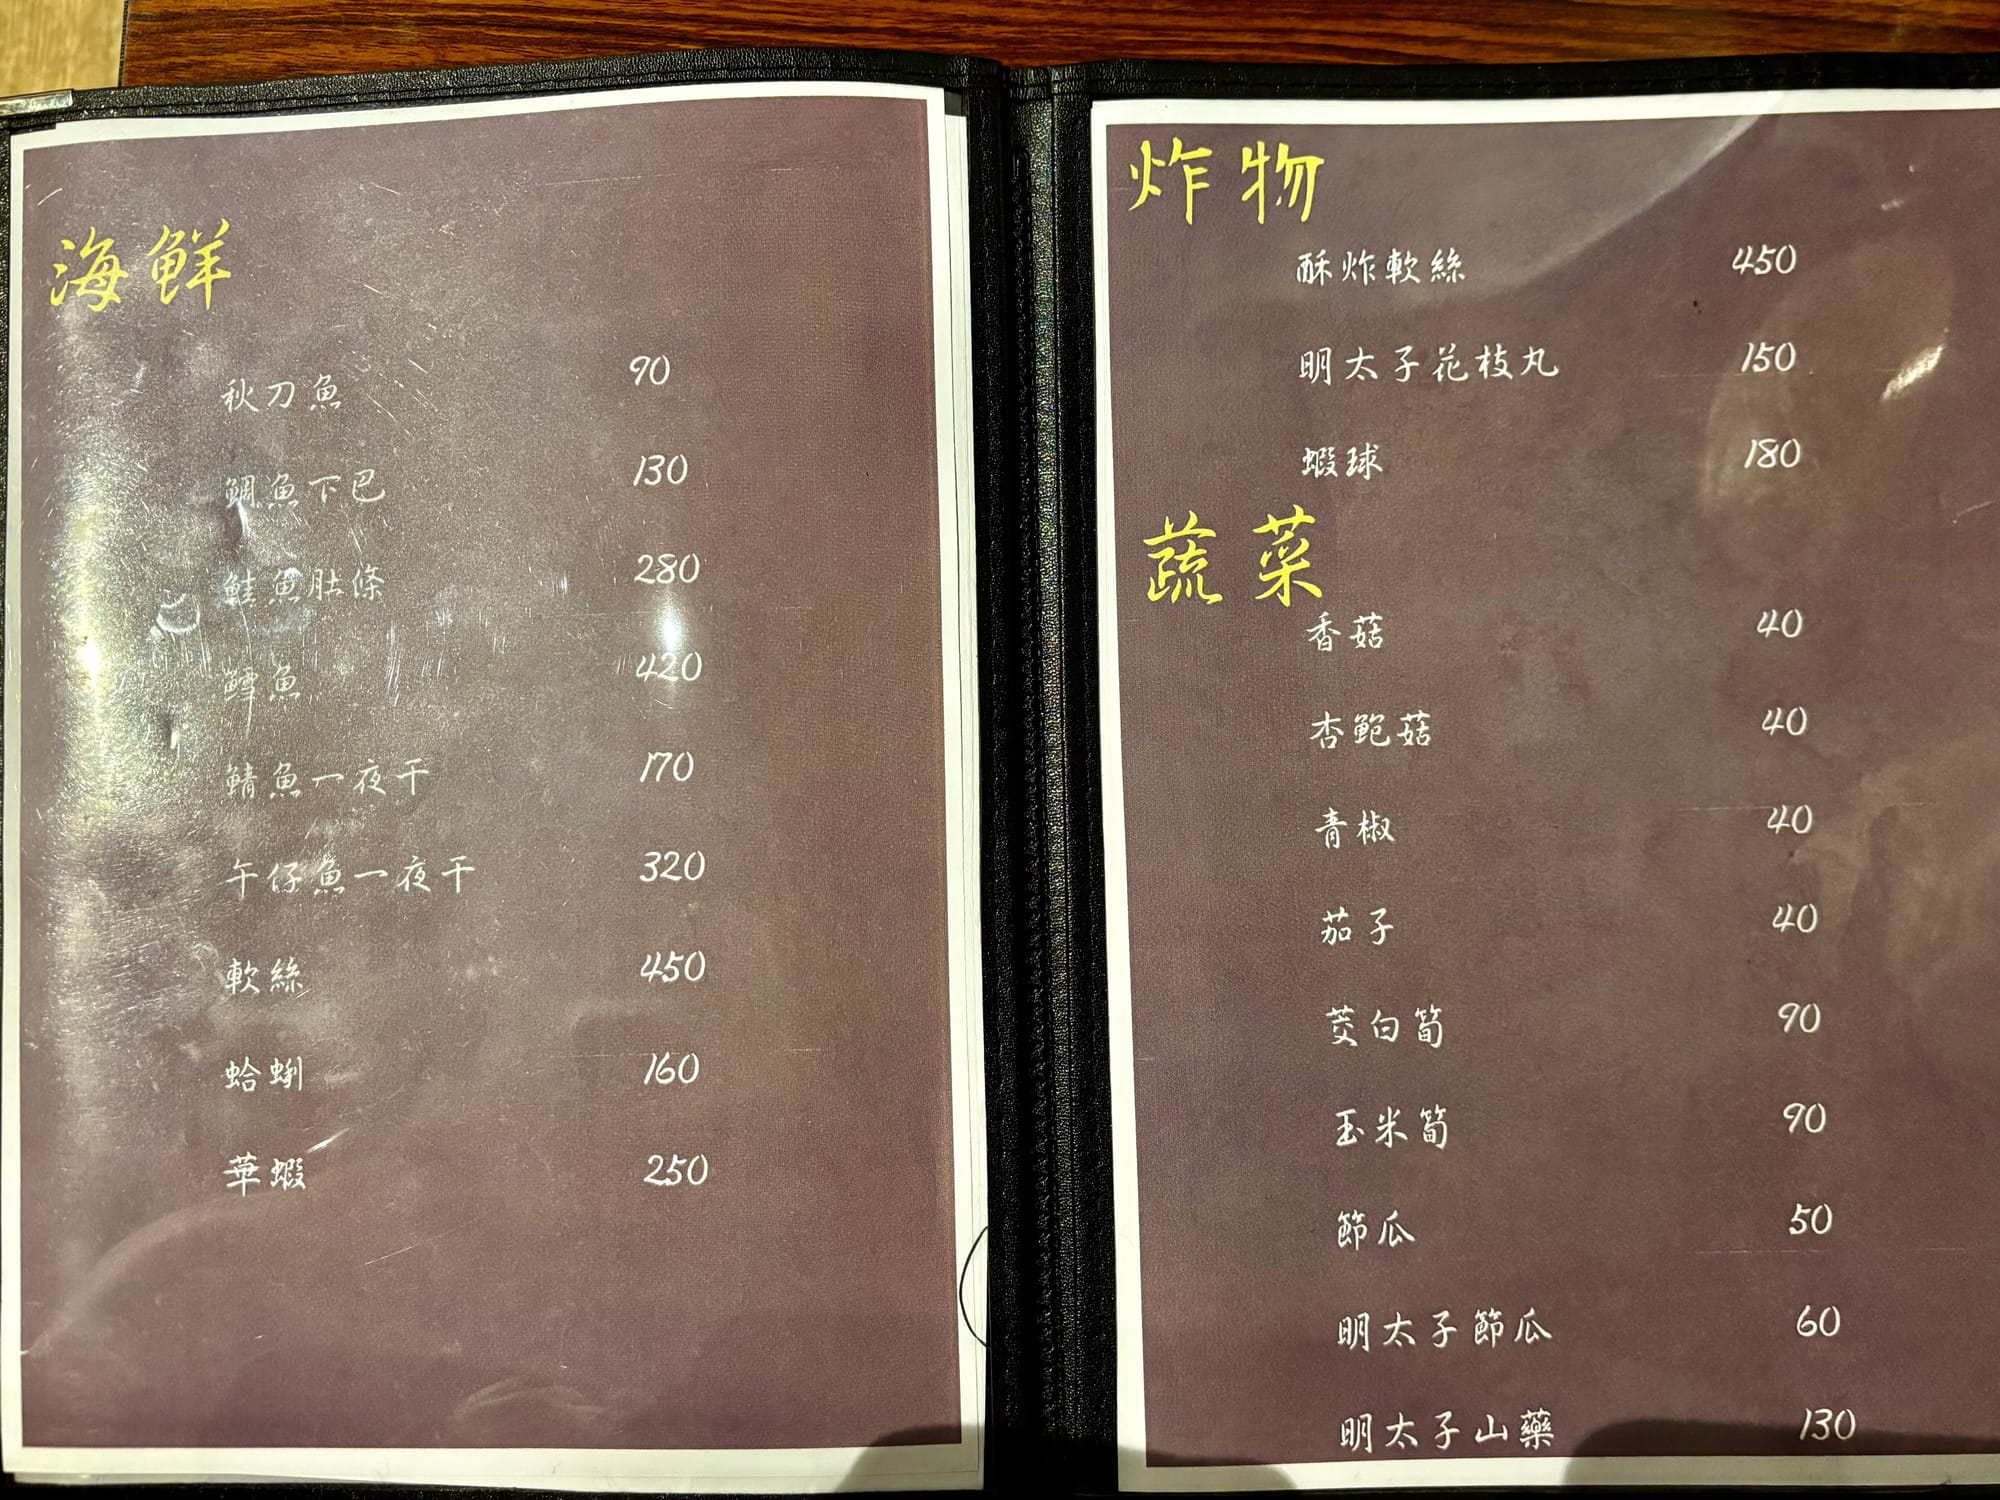 海鮮
秋刀魚 90
鯛魚下巴 130
鮭魚肚條 280
鱈魚 420
鯖魚一夜干 170
午仔魚一夜干 320
軟絲 450
蛤蜊 160
草蝦 250
炸物
酥炸軟絲 450
明太子花枝丸 150
蝦球 180
蔬菜
香菇 40
杏鮑菇 40
青椒 40
茄子 40
茭白筍 90
玉米筍 90
節瓜 50
明太子節瓜 60
明太子山藥 130